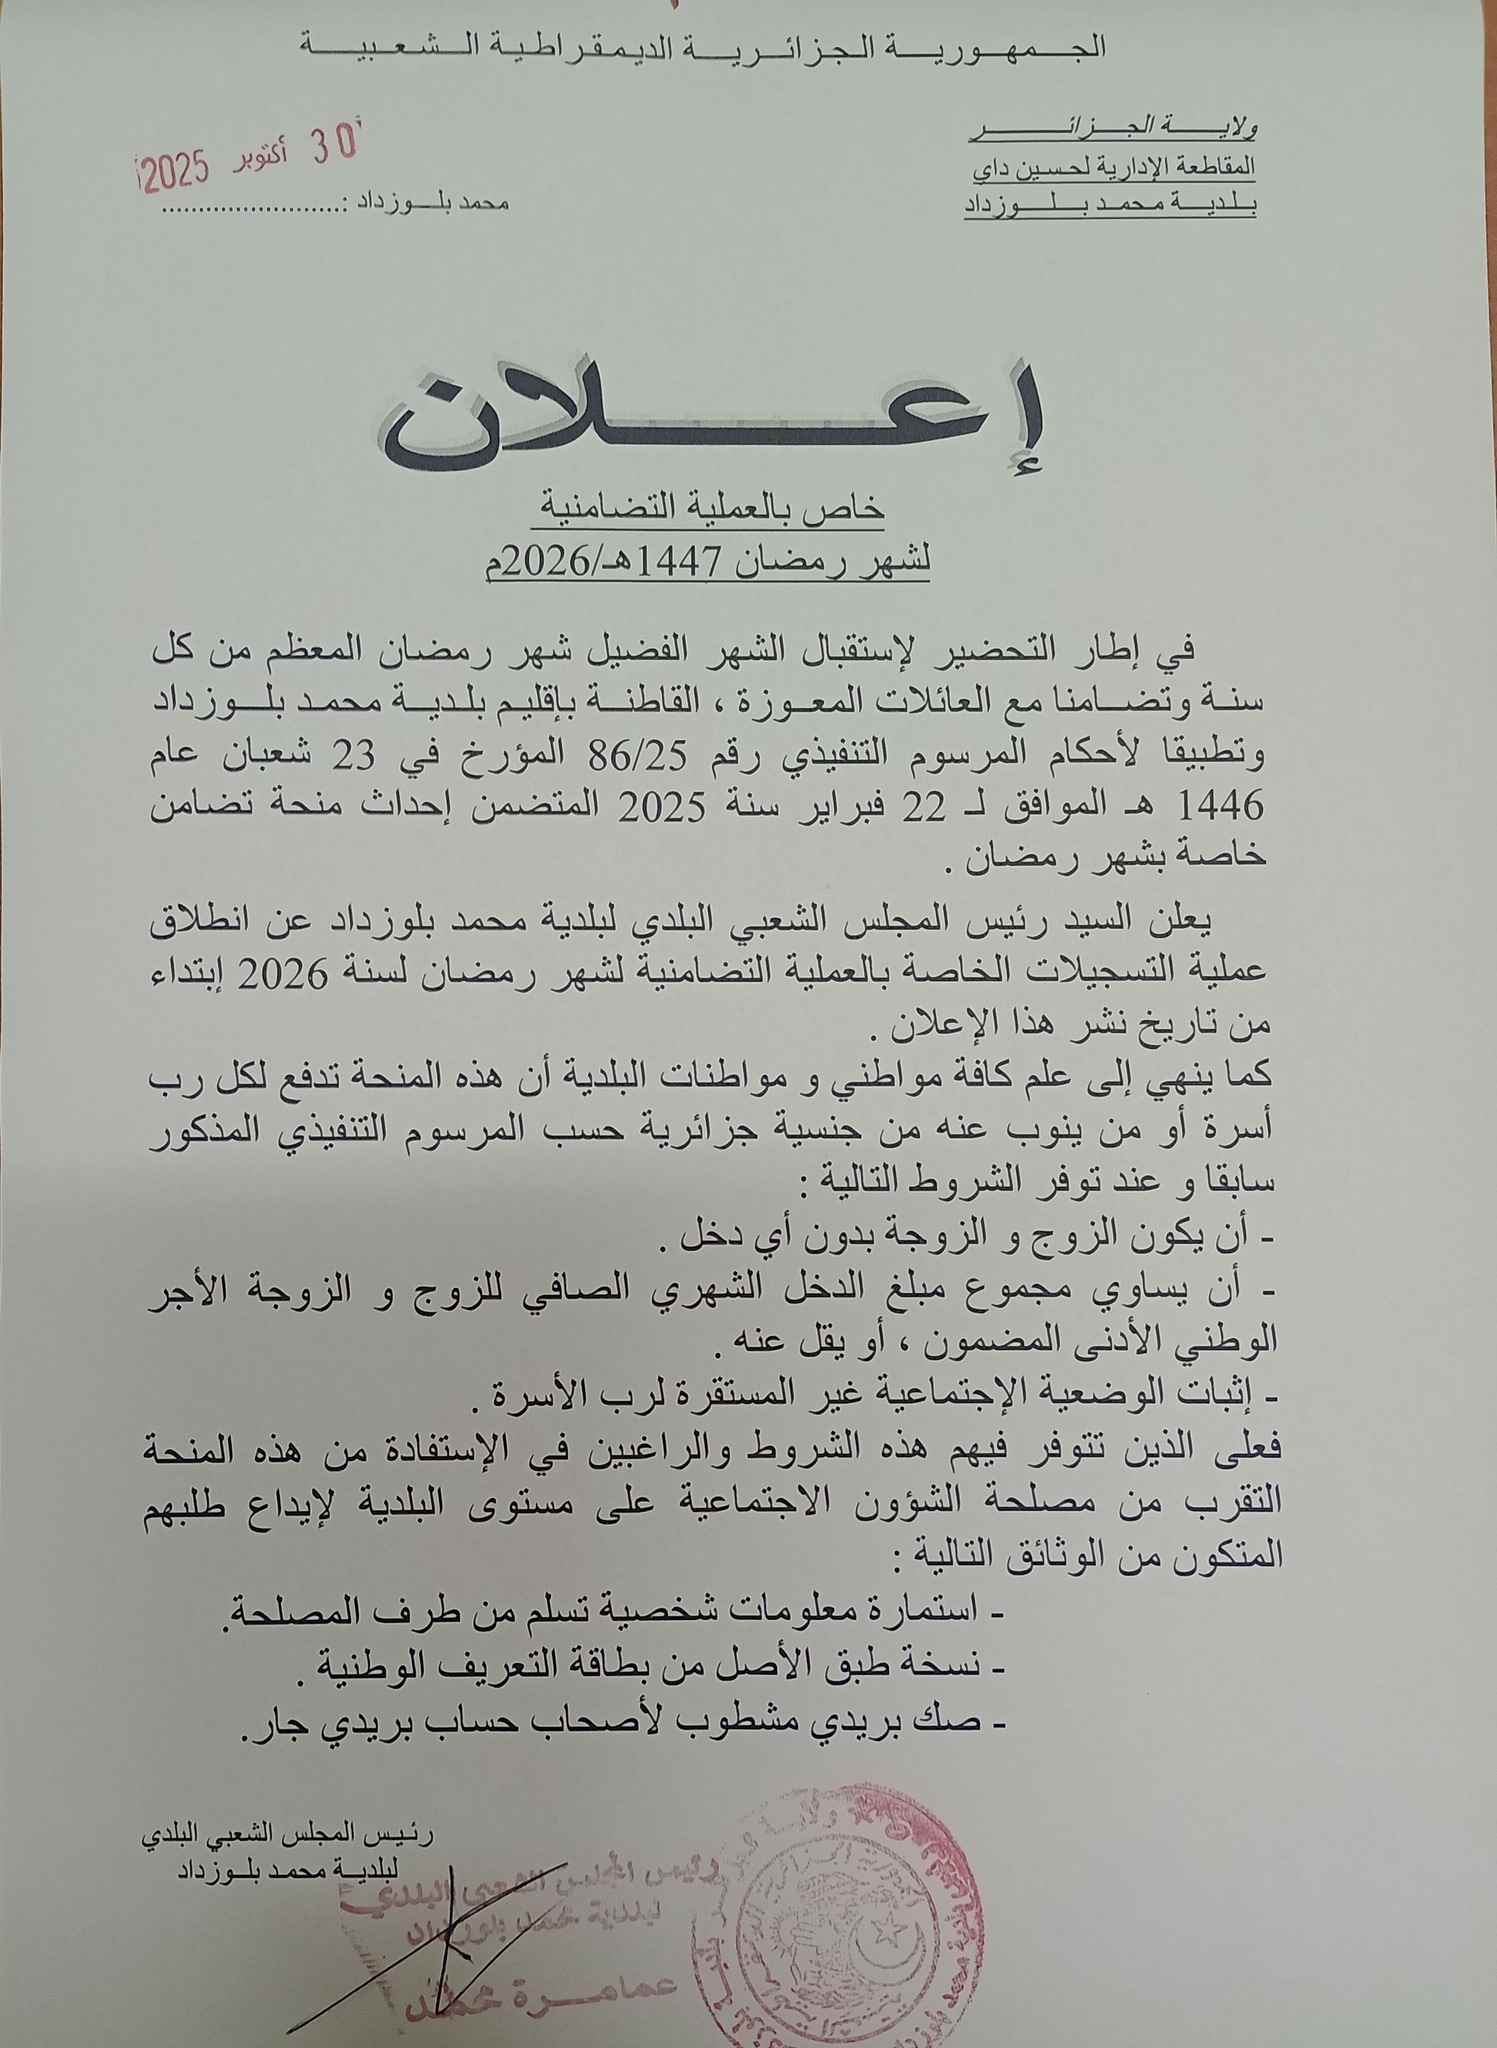 الجمهورية الجزائرية الديمقراطية الشعبية
ولاية الجزائر
المقاطعة الإدارية لحسين داي
بلدية محمد بلوزداد
30 أكتوبر 2025
محمد بلوزداد :.........................
إعلان
خاص بالعملية التضامنية
لشهر رمضان 1447هـ/2026م
في إطار التحضير لإستقبال الشهر الفضيل شهر رمضان المعظم من كل
سنة وتضامنا مع العائلات المعوزة ، القاطنة بإقليم بلدية محمد بلوزداد
وتطبيقا لأحكام المرسوم التنفيذي رقم 86/25 المؤرخ في 23 شعبان عام
1446 هـ الموافق لـ 22 فبراير سنة 2025 المتضمن إحداث منحة تضامن
خاصة بشهر رمضان .
يعلن السيد رئيس المجلس الشعبي البلدي لبلدية محمد بلوزداد عن انطلاق
عملية التسجيلات الخاصة بالعملية التضامنية لشهر رمضان لسنة 2026 إبتداء
من تاريخ نشر هذا الإعلان .
كما ينهي إلى علم كافة مواطني و مواطنات البلدية أن هذه المنحة تدفع لكل رب
أسرة أو من ينوب عنه من جنسية جزائرية حسب المرسوم التنفيذي المذكور
سابقا و عند توفر الشروط التالية :
- أن يكون الزوج و الزوجة بدون أي دخل .
- أن يساوي مجموع مبلغ الدخل الشهري الصافي للزوج و الزوجة الأجر
الوطني الأدنى المضمون ، أو يقل عنه .
- إثبات الوضعية الإجتماعية غير المستقرة لرب الأسرة .
فعلى الذين تتوفر فيهم هذه الشروط والراغبين في الإستفادة من هذه المنحة
التقرب من مصلحة الشؤون الاجتماعية على مستوى البلدية لإيداع طلبهم
المتكون من الوثائق التالية :
- استمارة معلومات شخصية تسلم من طرف المصلحة.
- نسخة طبق الأصل من بطاقة التعريف الوطنية .
- صك بريدي مشطوب لأصحاب حساب بريدي جار.
رئيس المجلس الشعبي البلدي
لبلدية محمد بلوزداد
رئيس المجلس الشعبي البلدي
لبلدية محمد بلوزداد
عمامرة محمد